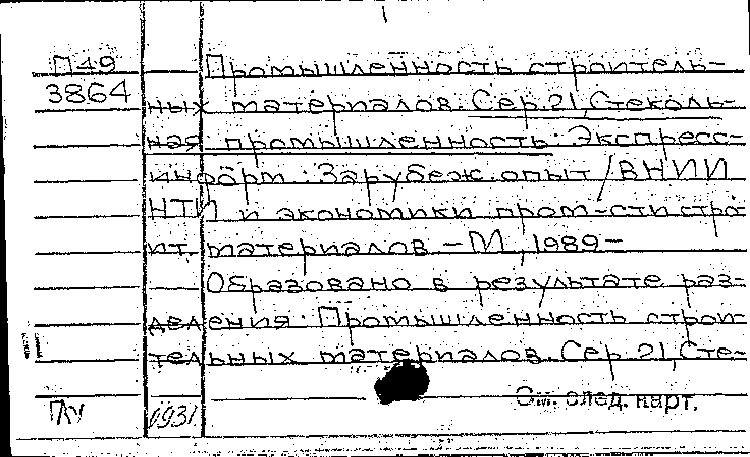 П49
3864
Промышленность строитель-
ных материалов. Сер. 21, Стеколь-
ная промышленность: Экспресс-
информ. Зарубеж. опыт / ВНИИ
НТИ и экономики пром-сти стро-
ит. материалов. – М., 1989–
Образовано в результате раз-
деления: Промышленность строи-
тельных материалов. Сер. 21, Сте-
См. след. карт.
0931